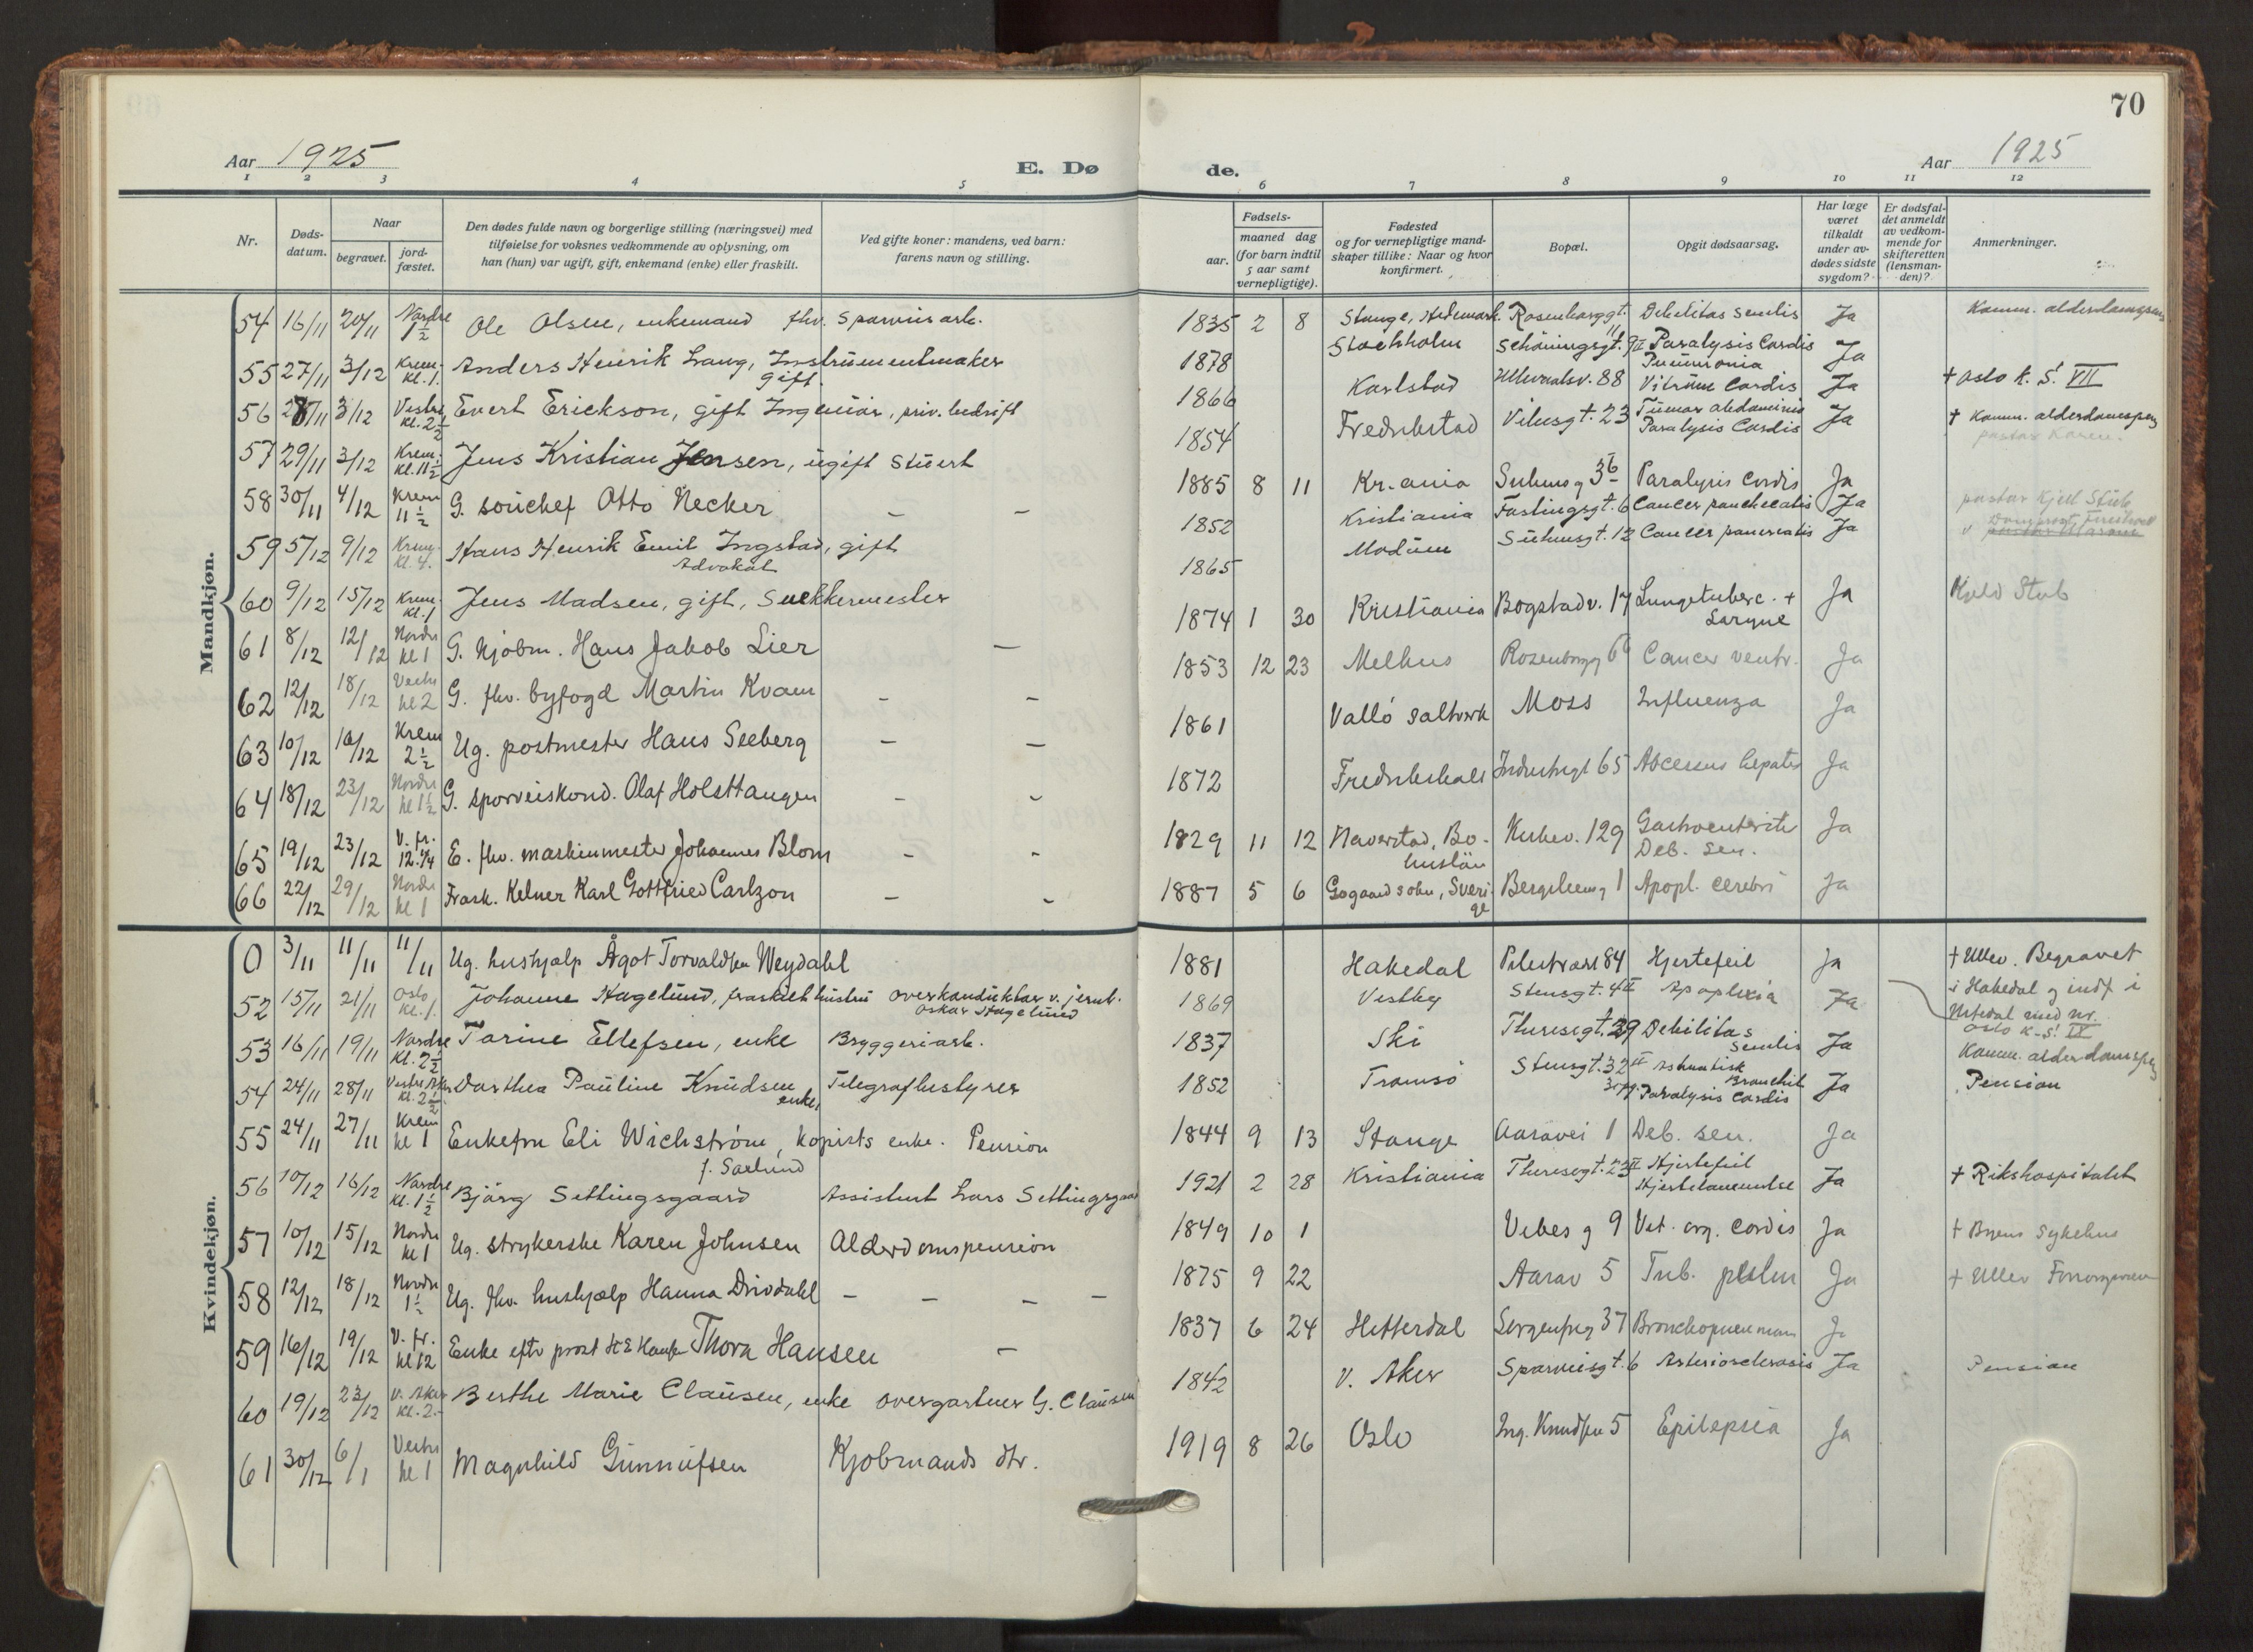 70
Aar 1925
E. Dø
de.
Aar 1925
1 2 3 4 5 6 7 8 9 10 11 12
Nr.
Døds-
datum.
Naar
begravet.
jord-
fæstet.
Den dødes fulde navn og borgerlige stilling (næringsvei) med
tilføielse for voksnes vedkommende av oplysning, om
han (hun) var ugift, gift, enkemand (enke) eller fraskilt.
Ved gifte koner: mandens, ved barn:
farens navn og stilling.
Fødsels-
aar.
maaned dag
(for barn indtil
5 aar samt
vernepligtige).
Fødested
og for vernepligtige mand-
skaper tillike: Naar og hvor
konfirmert.
Bopæl.
Opgit dødsaarsag.
Har læge
været
tilkaldt
under av-
dødes sidste
sygdom?
Er dødsfal-
det anmeldt
av vedkom-
mende for
skifteretten
(lensman-
den)?
Anmerkninger.
Mandkjøn.
54 16/11 20/11 Nordre 1½ Ole Olsen, enkemand fhv. Sporveisarb. 1835 2 8 Stange, Hedemark. Rosenborggt. 11 Debilitas senilis Ja Komm. alderdomspens
55 27/11 3/12 Krem. kl. 1. Anders Henrik Lang, Instrumentmaker gift. 1878 Stockholm Schöningsgt. 9 II Paralysis Cordis Pneumonia Ja
56 28/11 3/12 Vestre kl. 2½ Evert Erickson, gift Ingeniør, priv. bedrift 1866 Karlstad Ullevaalsv. 88 Vitium Cordis Ja † Oslo k. S. VII
57 29/11 3/12 Krem. kl. 11½ Jens Kristian Jensen, ugift Stuert 1854 Fredrikstad Vibesgt. 23 Tumor abdominis Paralysis Cordis Ja † Komm. alderdomspens
58 30/11 4/12 Krem 11½ G. souchef Otto Necker — — 1885 8 11 Kr.ania Suhmsg 36 Paralysis cordis Ja
59 5/12 9/12 Krem. kl. 4. Hans Henrik Emil Ingstad, gift Advokat 1852 Kristiania Fastingsgt. 6 Cancer pancreatis Ja pastor Kjell Stub
60 9/12 15/12 Krem. kl. 1 Jens Madsen, gift, Snekkermester 1865 Modum Suhmsgt. 12 Cancer pancreatis Ja
61 8/12 12/12 Nordre kl 1 G. kjøbm. Hans Jakob Lier — 1874 1 30 Kristiania Bogstadv. 17 Lungetuberc. + Larynx Ja Kjeld Stub
62 12/12 18/12 Vestre kl 2 G. fhv. byfogd Martin Kvam — — 1853 12 23 Melhus Rosenborgg 6 Cancer ventr. Ja
63 10/12 16/12 Krem 2½ Ug. postmester Hans Seeberg — — 1861 Valló saltverk Moss Influenza Ja
64 18/12 23/12 Nordre kl 1½ G. sporveiskond. Olaf Holsttangen — — 1872 Fredrikshald Industrigt 65 Abcessus hepatis Ja
65 19/12 23/12 V. fr. 12.¼ E. fhv. maskinmester Johannes Blom — — 1829 11 12 Naverstad, Bohuslän Kirkev. 129 Gastroenterit Deb. sen. Ja
66 22/12 29/12 Nordre kl 1 Frask. Kelner Karl Gottfried Carlzon — — 1887 5 6 Sverige Bergslieng 1 Apopl. cerebri Ja
Kvindekjøn.
0 3/11 11/11 11/11 Ug. hushjælp Ågot Torvaldsen Weydahl 1881 Hakedal Pilestræd 84 Hjertefeil Ja † Ullev. Begravet i Hakedal og indf i Nitedal med nr.
52 15/11 21/11 Oslo kl. 1. Johanne Hagelund, fraskilt hustru overkonduktør v. jernb. Oskar Hagelund 1869 Vestby Stensgt. 4 II Apoplexia Ja Oslo k. S. IX
53 16/11 19/11 Nordre kl. 2½ Torine Ellefsen, enke Bryggeriarb. 1837 Ski Theresegt. 39 Debilitas senilis Ja Komm. alderdomspens
54 24/11 28/11 Vestre Aker kl. 2½ Dorthea Pauline Knudsen enke, Telegrafbestyrer 1852 Tromsö Stensgt. 32 II Astmatisk Bronchit Paralysis Cordis Ja Pension
55 24/11 27/11 Krem kl 1 Enkefru Eli Wichstrøm, kopists enke. Pension f. Sarlund 1844 9 13 Stange Aaravei 1 Deb. sen. Ja
56 10/12 16/12 Nordre kl. 1½ Bjørg Settingsgaard Assistent Lars Settingsgaard 1921 2 28 Kristiania Theresegt. 23 II Hjertefeil Hjertelammelse Ja † Rikshospitalet
57 10/12 15/12 Nordre kl 1 Ug. strykerske Karen Johnsen Alderdomspension 1849 10 1 Vibes g 9 Vit. org. cordis Ja † Byens sykehus
58 12/12 18/12 Nordre 1½ Ug. fhv. hushjælp Hanna Drivdahl — — — — 1875 9 22 Aarav 5 Tub. pulm Ja † Ullev
59 16/12 19/12 V. fr. kl 12 Enke eftr prost H E Hansen Thora Hansen — 1837 6 24 Hitterdal Sorgenfrig 37 Bronchopneumoni Ja
60 19/12 23/12 V. Aker kl. 2.- Berthe Marie Clausen, enke overgartner G. Clausen 1842 V. Aker Sporveisgt. 6 Arteriosclerosis Ja Pension
61 30/12 6/1 Vestre kl 1 Magnhild Gunnufsen Kjøbmands dtr. 1919 8 26 Oslo Ing. Knudsen 5 Epilepsia Ja